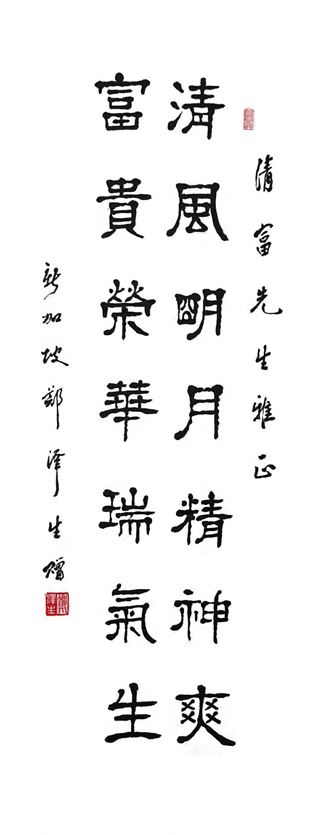 清富先生雅正
清風明月精神爽
富貴榮華瑞氣生
新加坡鄭澤生贈